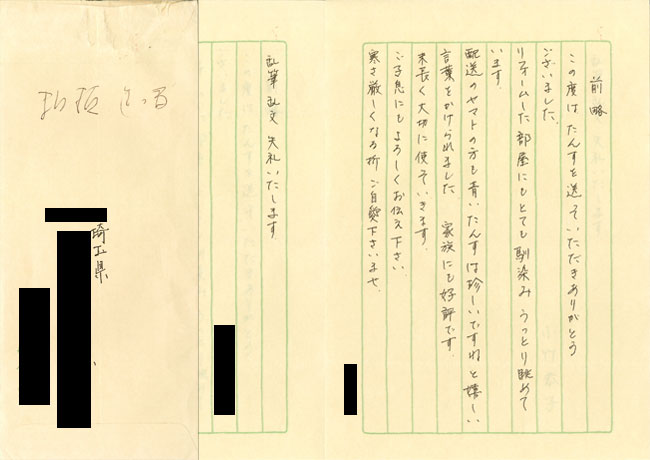 前略
この度はたんすを送っていただきありがとう
ございました。
リフォームした部屋にもとても馴染みうっとり眺めて
います。
配送のヤマトの方も青いたんすは珍しいですねと嬉しい
言葉をかけられました 家族にも好評です。
末長く大切に使っていきます。
ご子息にもよろしくお伝え下さい。
寒さ厳しくなる折 ご自愛下さいませ。
乱筆乱文 失礼いたします
埼玉県